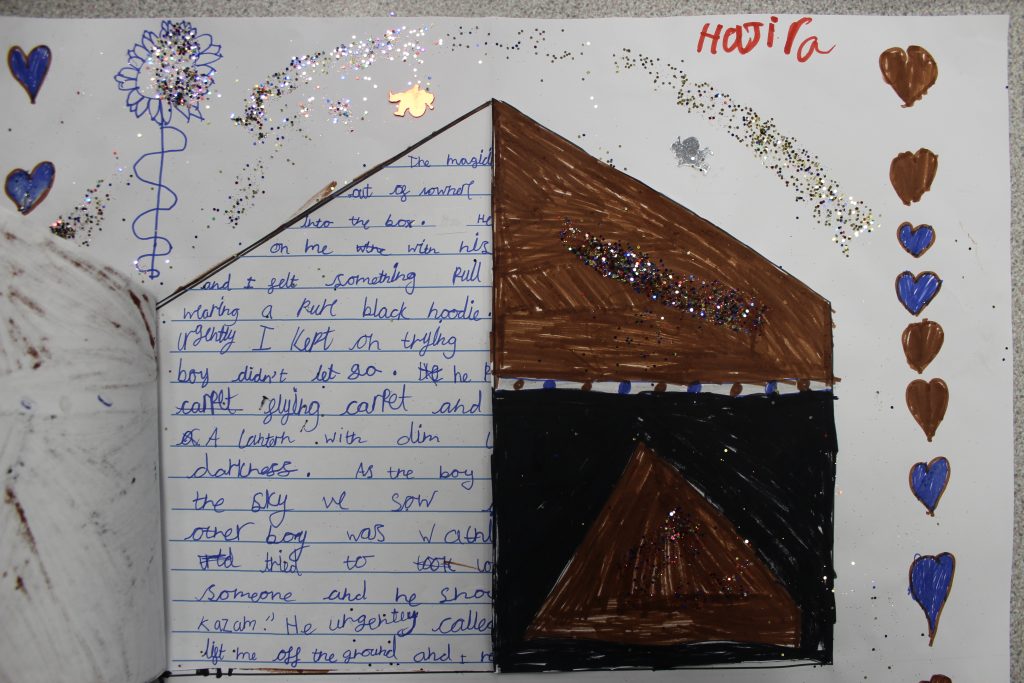 Hajira
The magic
out of nowher
into the box. He
on me with his
and I felt something pull
wearing a black hoodie.
urgently I kept on trying
boy didn't let go. he
carpet flying carpet and
A lantern with dim
darkness. As the boy
the sky we sow
other boy was
tried to took lo
someone and he sho
Kazam." He urgently calle
lift me off the ground and I re